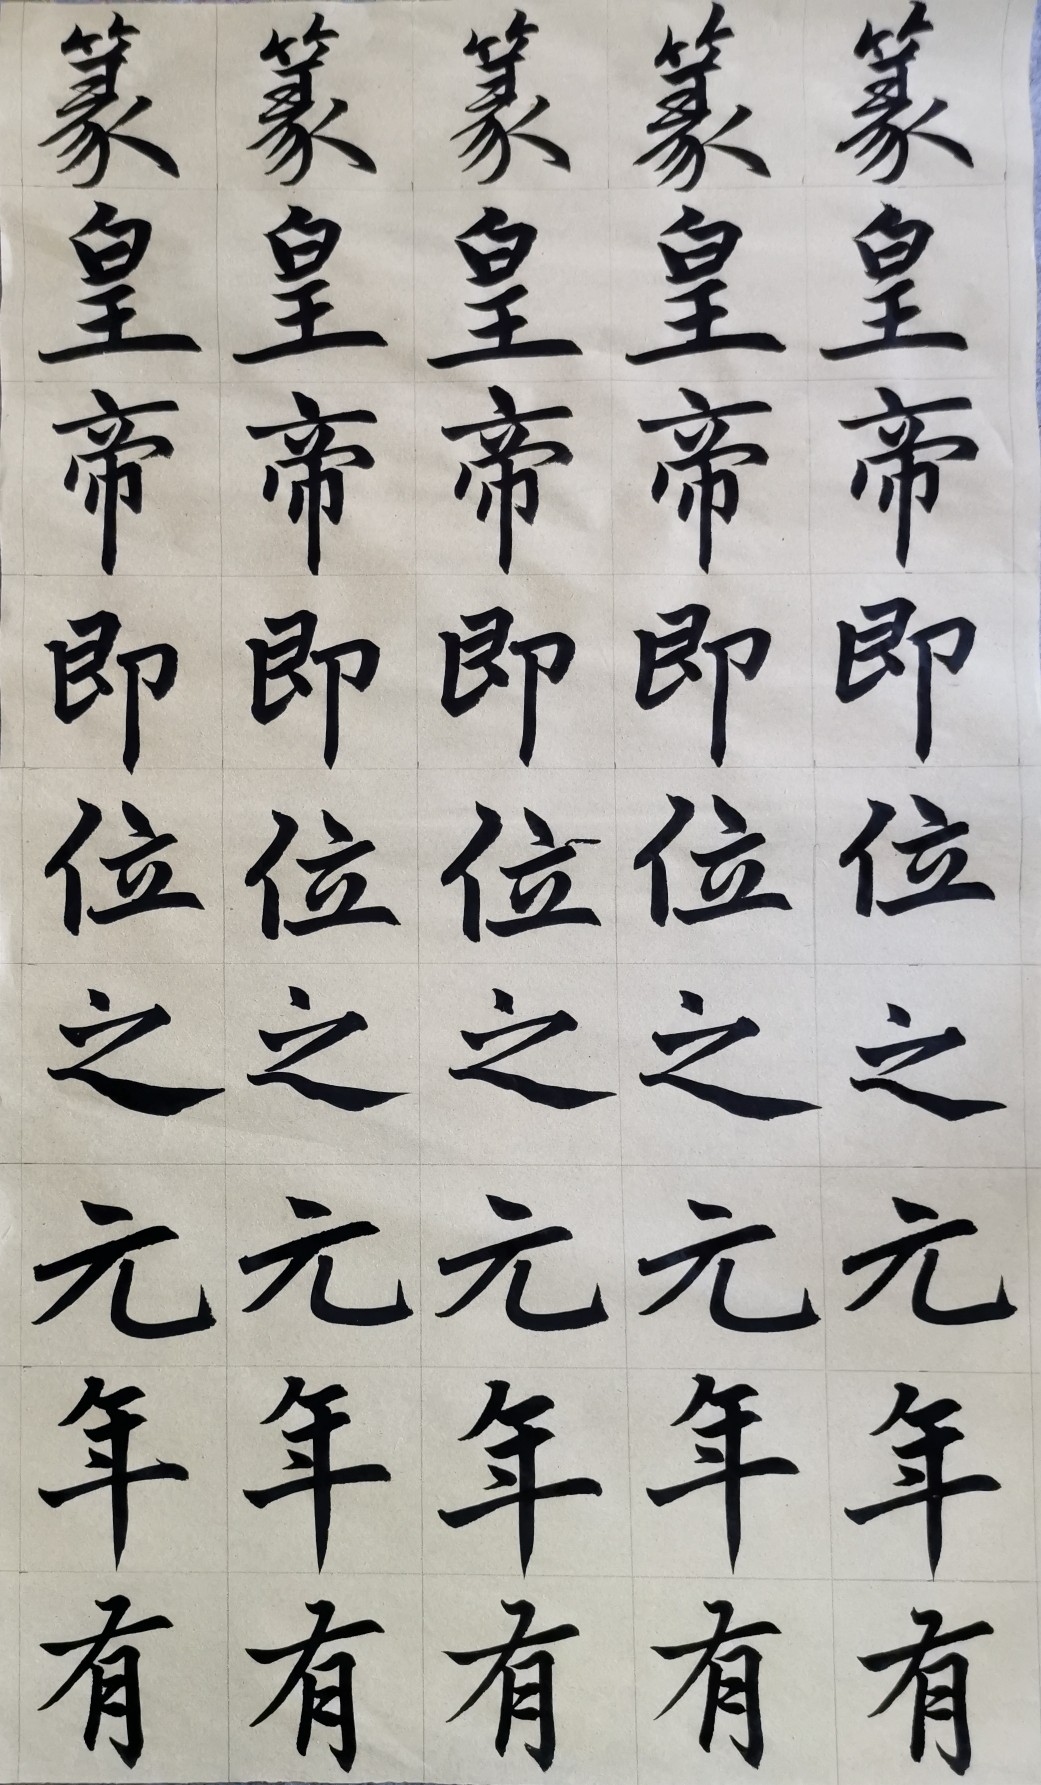 篆篆篆篆篆
皇皇皇皇皇
帝帝帝帝帝
即即即即即
位位位位位
之之之之之
元元元元元
年年年年年
有有有有有